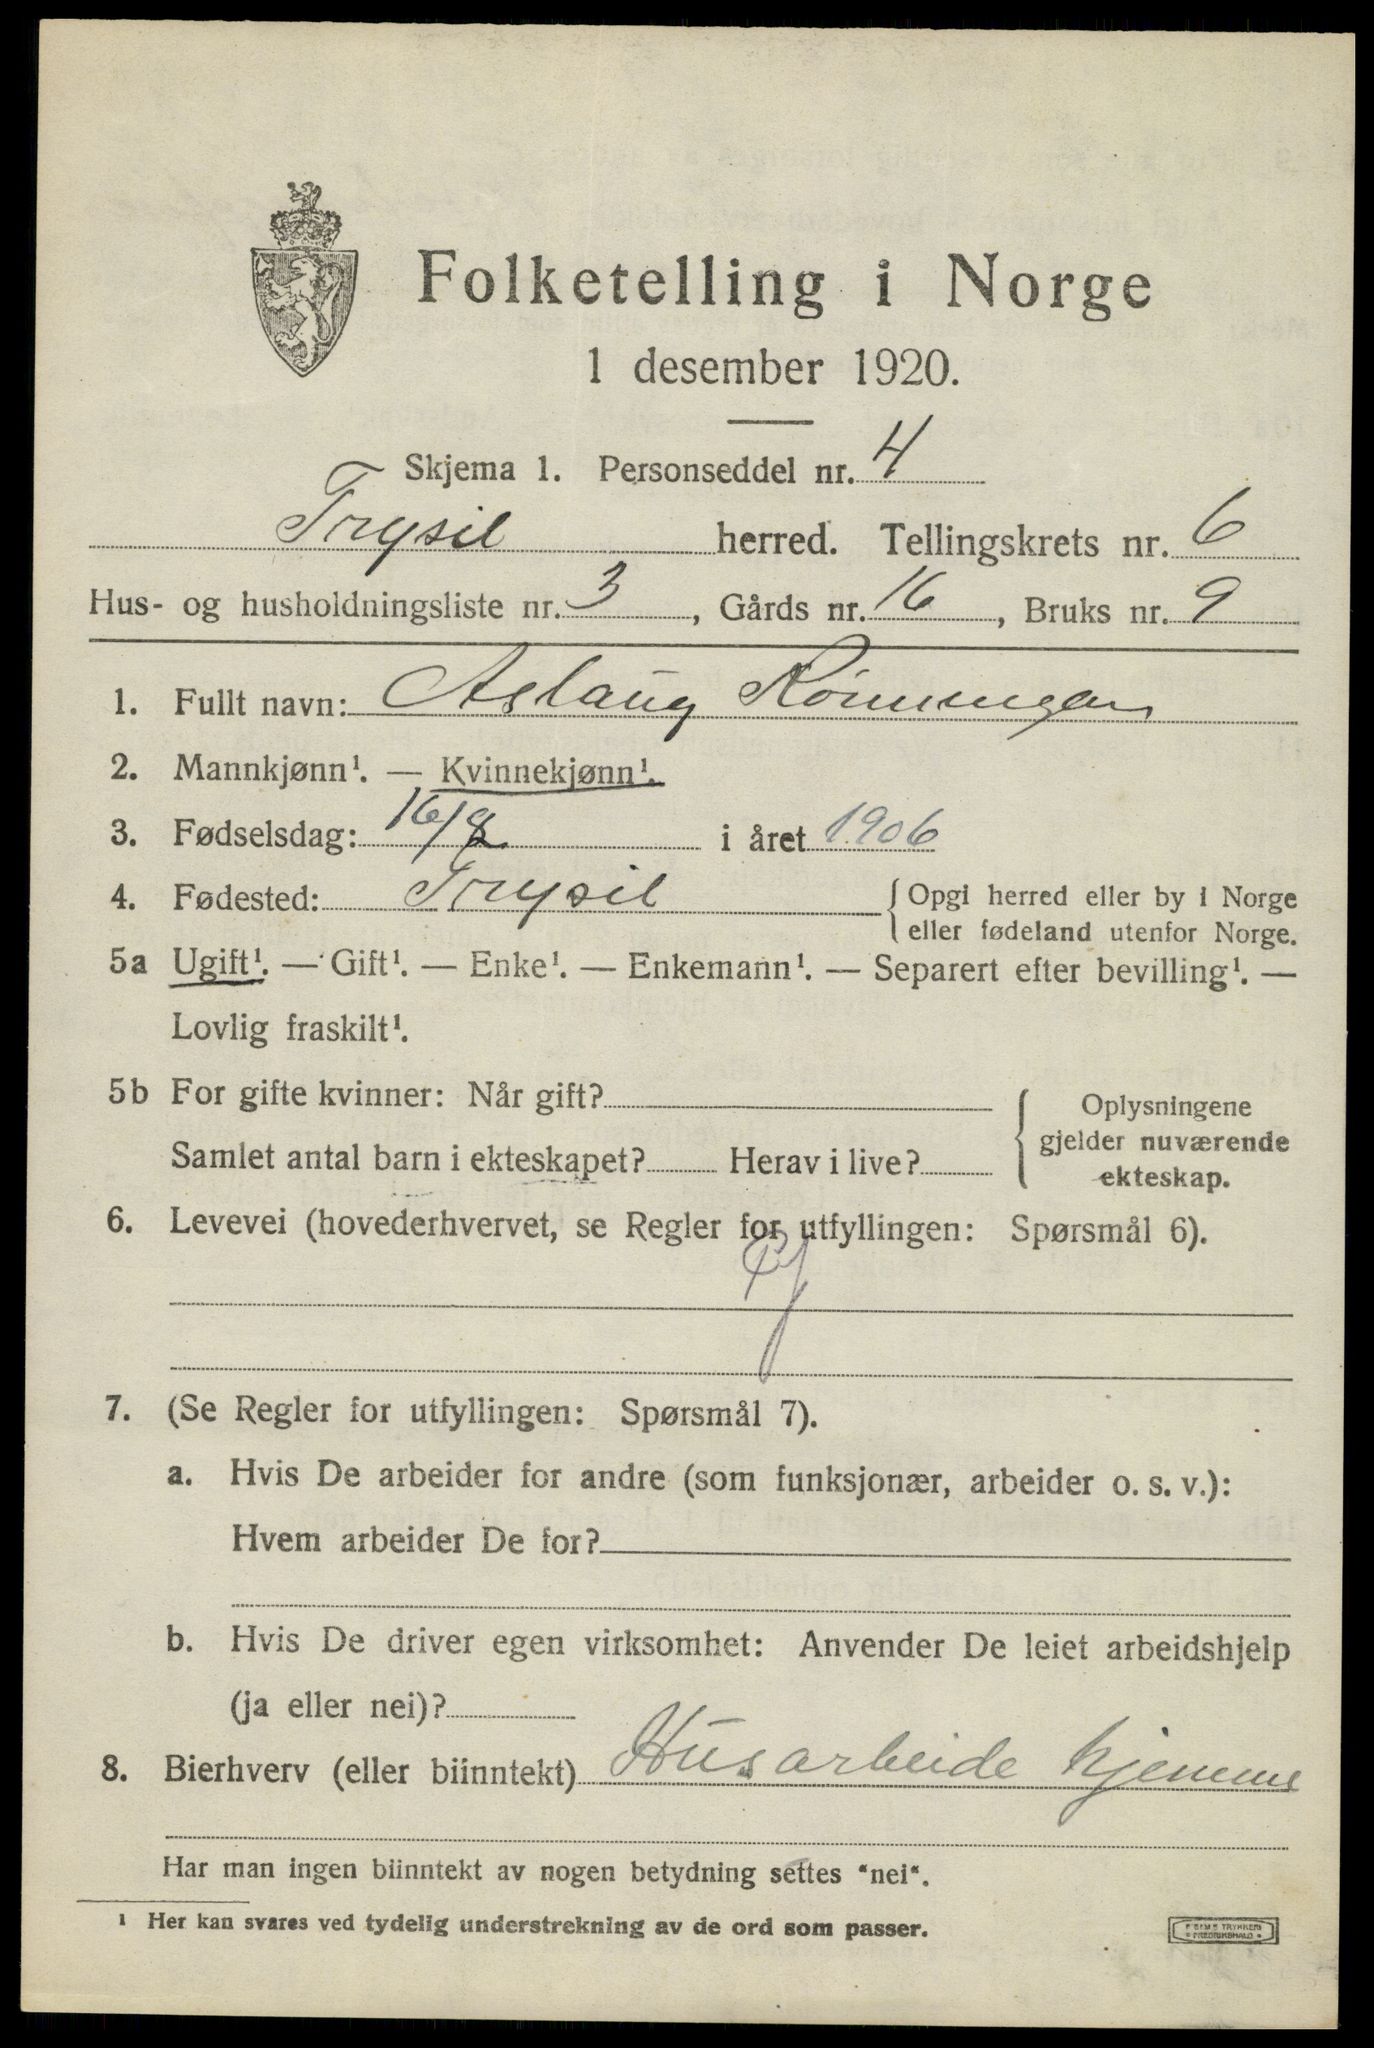 Folketelling i Norge
1 desember 1920.
Skjema 1. Personseddel nr. 4
Trysil herred. Tellingskrets nr. 6
Hus- og husholdningsliste nr. 3, Gårds nr. 16, Bruks nr. 9
1. Fullt navn: Aslaug Rönningen
2. Mannkjønn¹. — Kvinnekjønn¹.
3. Fødselsdag: 16/ i året 1906
4. Fødested: Trysil { Opgi herred eller by i Norge
eller fødeland utenfor Norge.
5a Ugift¹. — Gift¹. — Enke¹. — Enkemann¹. — Separert efter bevilling¹. —
Lovlig fraskilt¹.
5b For gifte kvinner: Når gift?
Samlet antal barn i ekteskapet? Herav i live?
{ Oplysningene
gjelder nuværende
ekteskap.
6. Levevei (hovederhvervet, se Regler for utfyllingen: Spørsmål 6).
7. (Se Regler for utfyllingen: Spørsmål 7).
a. Hvis De arbeider for andre (som funksjonær, arbeider o. s. v.):
Hvem arbeider De for?
b. Hvis De driver egen virksomhet: Anvender De leiet arbeidshjelp
(ja eller nei)?
8. Bierhverv (eller biinntekt) Husarbeide hjemme
Har man ingen biinntekt av nogen betydning settes "nei".
¹ Her kan svares ved tydelig understrekning av de ord som passer.